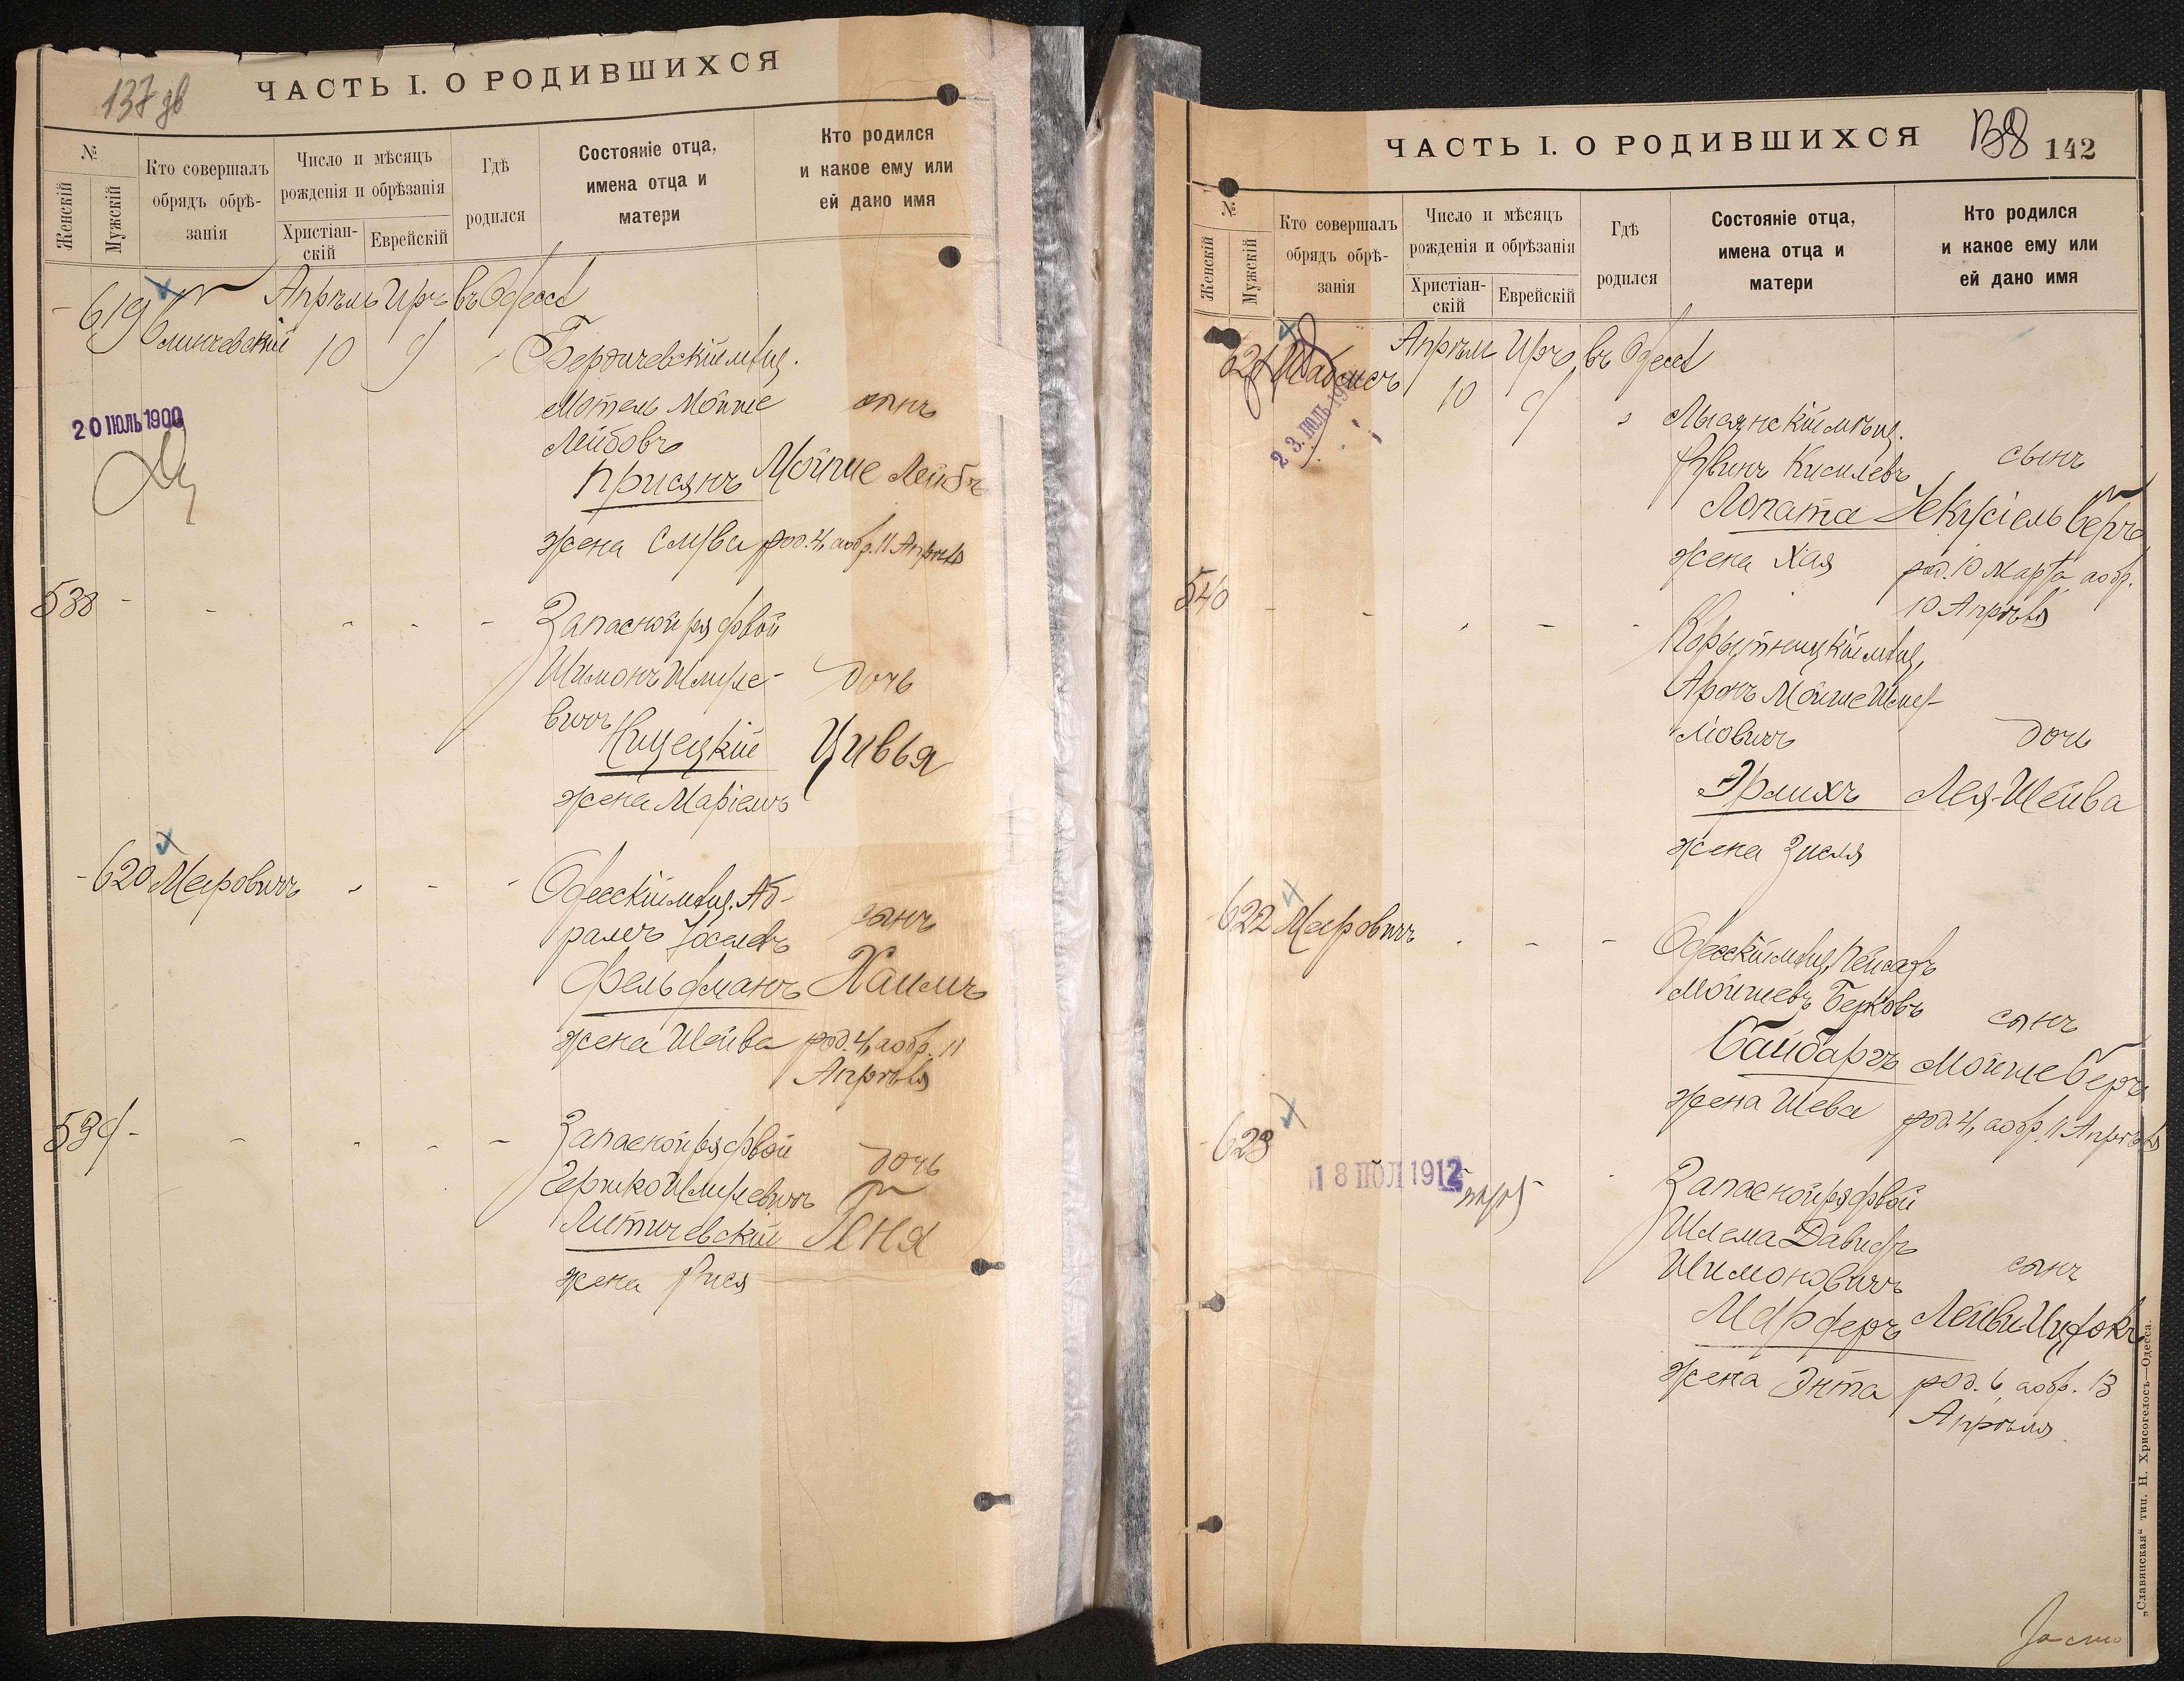 137 дв
ЧАСТЬ I. О РОДИВШИХСЯ
№
Женскій
Мужскій
Кто совершалъ
обрядъ обрѣ-
занія
Число и мѣсяцъ
рожденія и обрѣзанія
Христіан-
скій
Еврейскій
Гдѣ
родился
Состояніе отца,
имена отца и
матери
Кто родился
и какое ему или
ей дано имя
619
Апрѣль Иръ въ Одессѣ
10 9
Бердичевскій мѣщ.
Мотель Мойше сынъ
Лейбовъ
Присянъ Мойше Лейбъ
жена Слува род. 4, а обр. 11 Апрѣля
20 ІЮЛЬ 1900
538 - - - - - Запасной рядовой
Шимонъ Шмуле- дочь
вичъ
Нищецкій Цивья
жена Маріемъ
620 Меировичъ - - - Одесскій мѣщ. Аб-
рамъ Іоселевъ сынъ
Фельдманъ Хаимъ
жена Шейва род. 4, а обр. 11
Апрѣля
539 - - - - - Запасной рядовой
дочь
Гершко Шмулевичъ
Литичевскій Геня
жена Рися
ЧАСТЬ I. О РОДИВШИХСЯ
138
142
№
Женскій
Мужскій
Кто совершалъ
обрядъ обрѣ-
занія
Число и мѣсяцъ
рожденія и обрѣзанія
Христіан-
скій
Еврейскій
Гдѣ
родился
Состояніе отца,
имена отца и
матери
Кто родился
и какое ему или
ей дано имя
621 Шабсисъ Апрѣль Иръ въ Одессѣ
10 9
Лысянскій мѣщ.
Кисилевъ сынъ
Лопата Іекусіель Беръ
жена Хая род. 10 Марта а обр.
10 Апрѣля
540 - - - - - Корытницкій мѣщ.
Аронъ Мойше Шмер-
ліовичъ дочь
Эрлихъ Лея-Шейва
жена Зисля
622 Меировичъ - - - Одесскій мѣщ. Пейсахъ
Мойшевъ Берковъ сынъ
Байбаръ Мойше Беръ
жена Шева род. 4, а обр. 11 Апрѣля
623
18 ІЮЛ 1912
Запасной рядовой
Шлема Давидъ
Шимоновичъ сынъ
Мардеръ Лейви Ицхокъ
жена Энта род. 6, а обр. 13
Апрѣля
„Славянская“ тип. Н. Хрисогелосъ—Одесса.